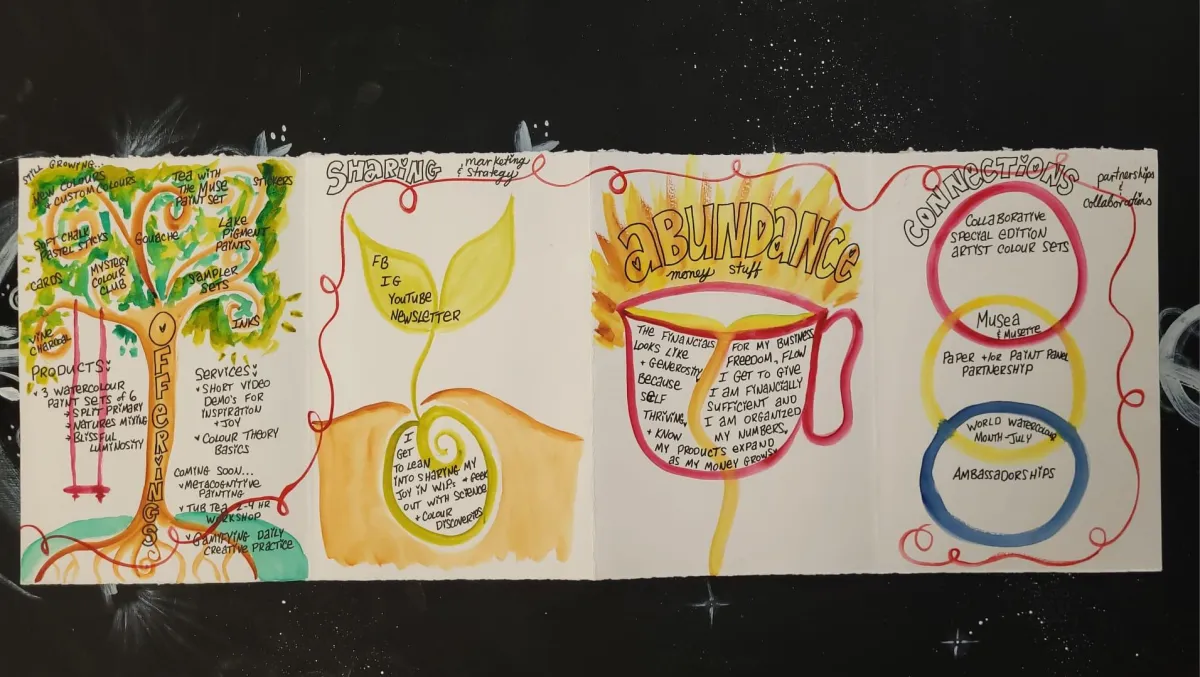 STILL GROWING...
NEW COLOURS
& CUSTOM COLOURS
TEA WITH
THE MUSE
PAINT SET
STICKERS
SOFT CHALK
PASTEL STICKS
GOUACHE
LAKE
PIGMENT
PAINTS
CARDS
MYSTERY
COLOUR
CLUB
SAMPLER
SETS
INKS
VINE
CHARCOAL
OFFERINGS
PRODUCTS:
3 WATERCOLOUR
PAINT SETS OF 6
SPLIT PRIMARY
NATURES MIXING
BLISSFUL
LUMINOSITY
SERVICES:
SHORT VIDEO
DEMO'S FOR
INSPIRATION
+ JOY
COLOUR THEORY
BASICS
COMING SOON...
METACOGNITIVE
PAINTING
TUB TEA 2-4 HR
WORKSHOP
GAMIFYING DAILY
CREATIVE PRACTICE
SHARING
marketing
& strategy
FB
IG
YOUTUBE
NEWSLETTER
I
GET
TO LEAN
INTO SHARING MY
JOY IN WIPS + GEEK
OUT WITH SCIENCE
+ COLOUR
DISCOVERIES
ABUNDANCE
money stuff
THE FINANCIALS
LOOKS LIKE
+ GENEROSITY
BECAUSE
SELF
THRIVING,
+ KNOW
FOR MY BUSINESS
FREEDOM, FLOW
I GET TO GIVE
I AM FINANCIALLY
SUFFICIENT AND
I AM ORGANIZED
MY NUMBERS.
MY PRODUCTS EXPAND
AS MY MONEY GROWS
CONNECTIONS
partnerships
&
collaborations
COLLABORATIVE
SPECIAL EDITION
ARTIST COLOUR SETS
MUSEA
& MUSETTE
PAPER +/OR PAINT PANEL
PARTNERSHIP
WORLD WATERCOLOUR
MONTH - JULY
AMBASSADORSHIPS